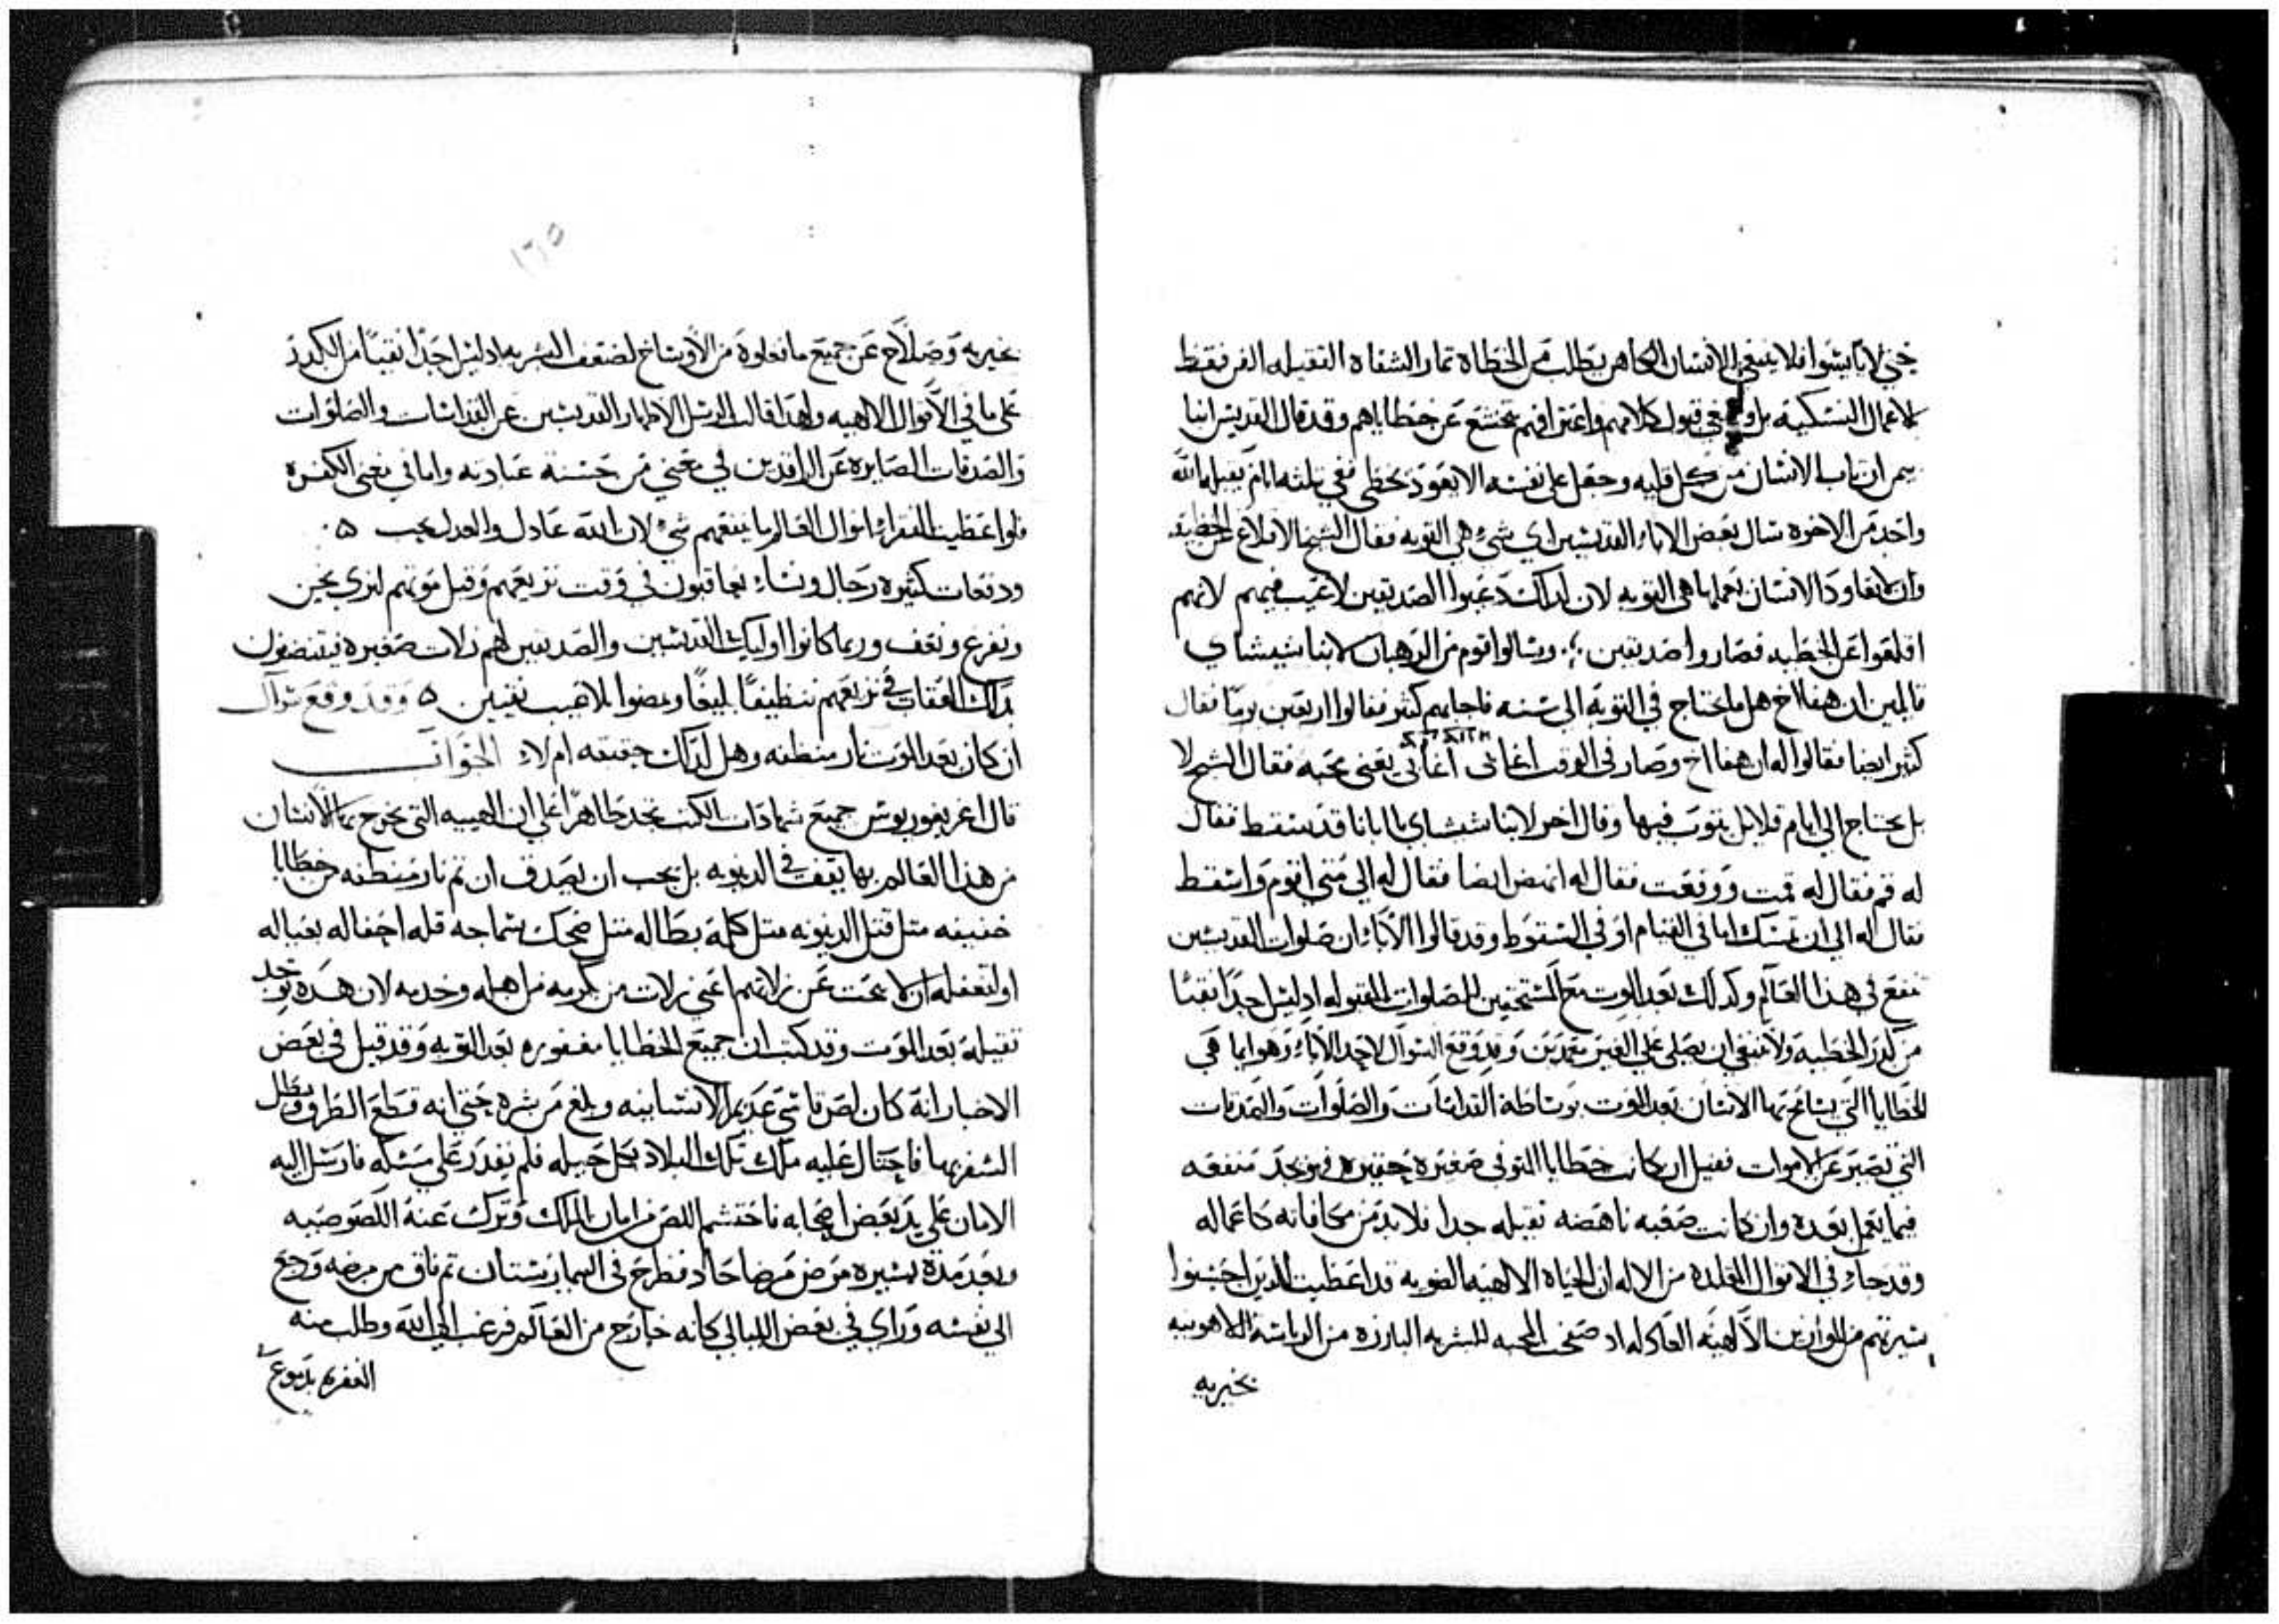 حتي لا يايسوا فلا ينبغي للانسان الكاهن يطلب من الخطاه تمار الشفاه الثقيله الفر فقط
لاعمال النسكيه بل و في قبول كلامهم واعترافهم بتخشع عن خطاياهم وقد قال القديس انبا
بيمن ان تاب الانسان من كل قلبه وجعل على نفسه الا يعود يخطي ففي تلته ايام يقبله الله
واحد من الاخوه سال بعض الاباء القديسين اي شي هي التوبه فقال الشيخ الاقلاع عن الخطيه
وان لا يعاود الانسان يعملها هي التوبه لان لذلك دعيوا الصديقين لا عيب فيهم لانهم
اقلعوا عن الخطيه فصاروا صديقين وسالوا قوم من الرهبان لانبا شيشاي
قايلين ان هفا اخ هل ما يحتاج في التوبه الى سنه فاجابهم كثير فقالوا اربعين يوما فقال
كثير ايضا فقالوا له ان هفا اخ وصار في الوقت اغابي يعني محبه فقال الشيخ لا
بل يحتاج الي ايام قلايل يتوب فيها وقال اخر لانبا شيشاي يا ابانا قد سقط فقال
له قم فقال له قمت ووقعت فقال له انهض ايضا فقال له الي متي اقوم واسقط
فقال له الي ان تمسك اما في القيام او في السقوط وقد قالوا الاباء ان صلوات القديسين
تنفع في هذا العالم وكذلك بعد الموت مع المستحقين للصلوات المقبوله اذ ليس احدا نقيا
من كدر الخطيه ولا ينبغي ان يصلي علي الغير متمدين وقد وقع السوال لاحد الاباء وهو ايما هي
الخطايا التي يسامح بها الانسان بعد الموت بوساطة القداسات والصلوات والصدقات
التي تصير عن الاموات فقيل ان كانت خطايا المتوفى صغيره حقيره فيوجد منفعه
فيما يعمل بعده وان كانت صعبه ناهضه ثقيله جدا فلا بد من مكافاته كاعماله
وقد جاء في الاقوال المقلده من الاله ان الحياه الالهيه الضويه قد اعطيت للذين احسنوا
سيرتهم من الموازين الالهيه العادله اذ صفحت المحبه للبشريه البارزه من الرياسة اللاهوتيه
بخيريه
١٦٥
بخيريه وصلاح عن جميع ما فعلوه من الاوساخ لضعف البشريه اذ ليس احدا نقيا من الكدر
على ما في الاقوال الالهيه ولهذا قالت الرسل الاطهار القديسين عن القداسات والصلوات
والصدقات الصايره عن الراقدين في معني من حسنة عبادته واما في معني الكفره
فلو اعطيت الفقراء اموال العالم ما ينفعهم شي لان الله عادل والعدل يحب
ودفعات كثيره رجال ونساء يعاقبون في وقت نزيعهم وقبل موتهم لنري نحن
ونفزع ونعف وربما كانوا اوليك القديسين والصديقين لهم زلات صغيره فيتنضفون
بذلك العقاب في نزيعهم تنظيفا بليغا ويمضوا بلا عيب نقيين وقد وقع سوال
ان كان بعد الموت نار منظفه وهل لذلك حقيقه ام لا الجواب
قال اغريغوريوس جميع شهادات الكتب تجد ظاهرا علي ان الهيبه التي يخرج بها الانسان
من هذا العالم بها يقف في الدينونه بل يجب ان يصدق ان ثم نار منظفه من خطايا
خفيفه مثل قتل الدينونه مثل كلمة بطاله مثل ضحك بسماجه قله احفاله بعياله
او لتغفله ان لا يبحث عن زلاتهم اعني زلات من يكرمه من اهله وخدمه لان هذه توجد
ثقيله بعد الموت وقد كتب ان جميع الخطايا مغفوره بعد التوبه وقد قيل في بعض
الاخبار انه كان لص قاسي عديم الانسانيه وبلغ من شره حتي انه قطع الطرق وبطل
السفر بها فاحتال عليه ملك تلك البلاد بكل حيله فلم يقدر علي مسكه فارسل اليه
الامان علي يد بعض اصحابه فاحتشم اللص من امان الملك وترك عنه اللصوصيه
وبعد مدة يسيره مرض مرضا حاد فطرح في البيمارستان ثم فاق من مرضه ورجع
الي نفسه وراي في بعض الليالي كانه خارج من العالم فرغب الي الله وطلب منه
الغفره بدموع